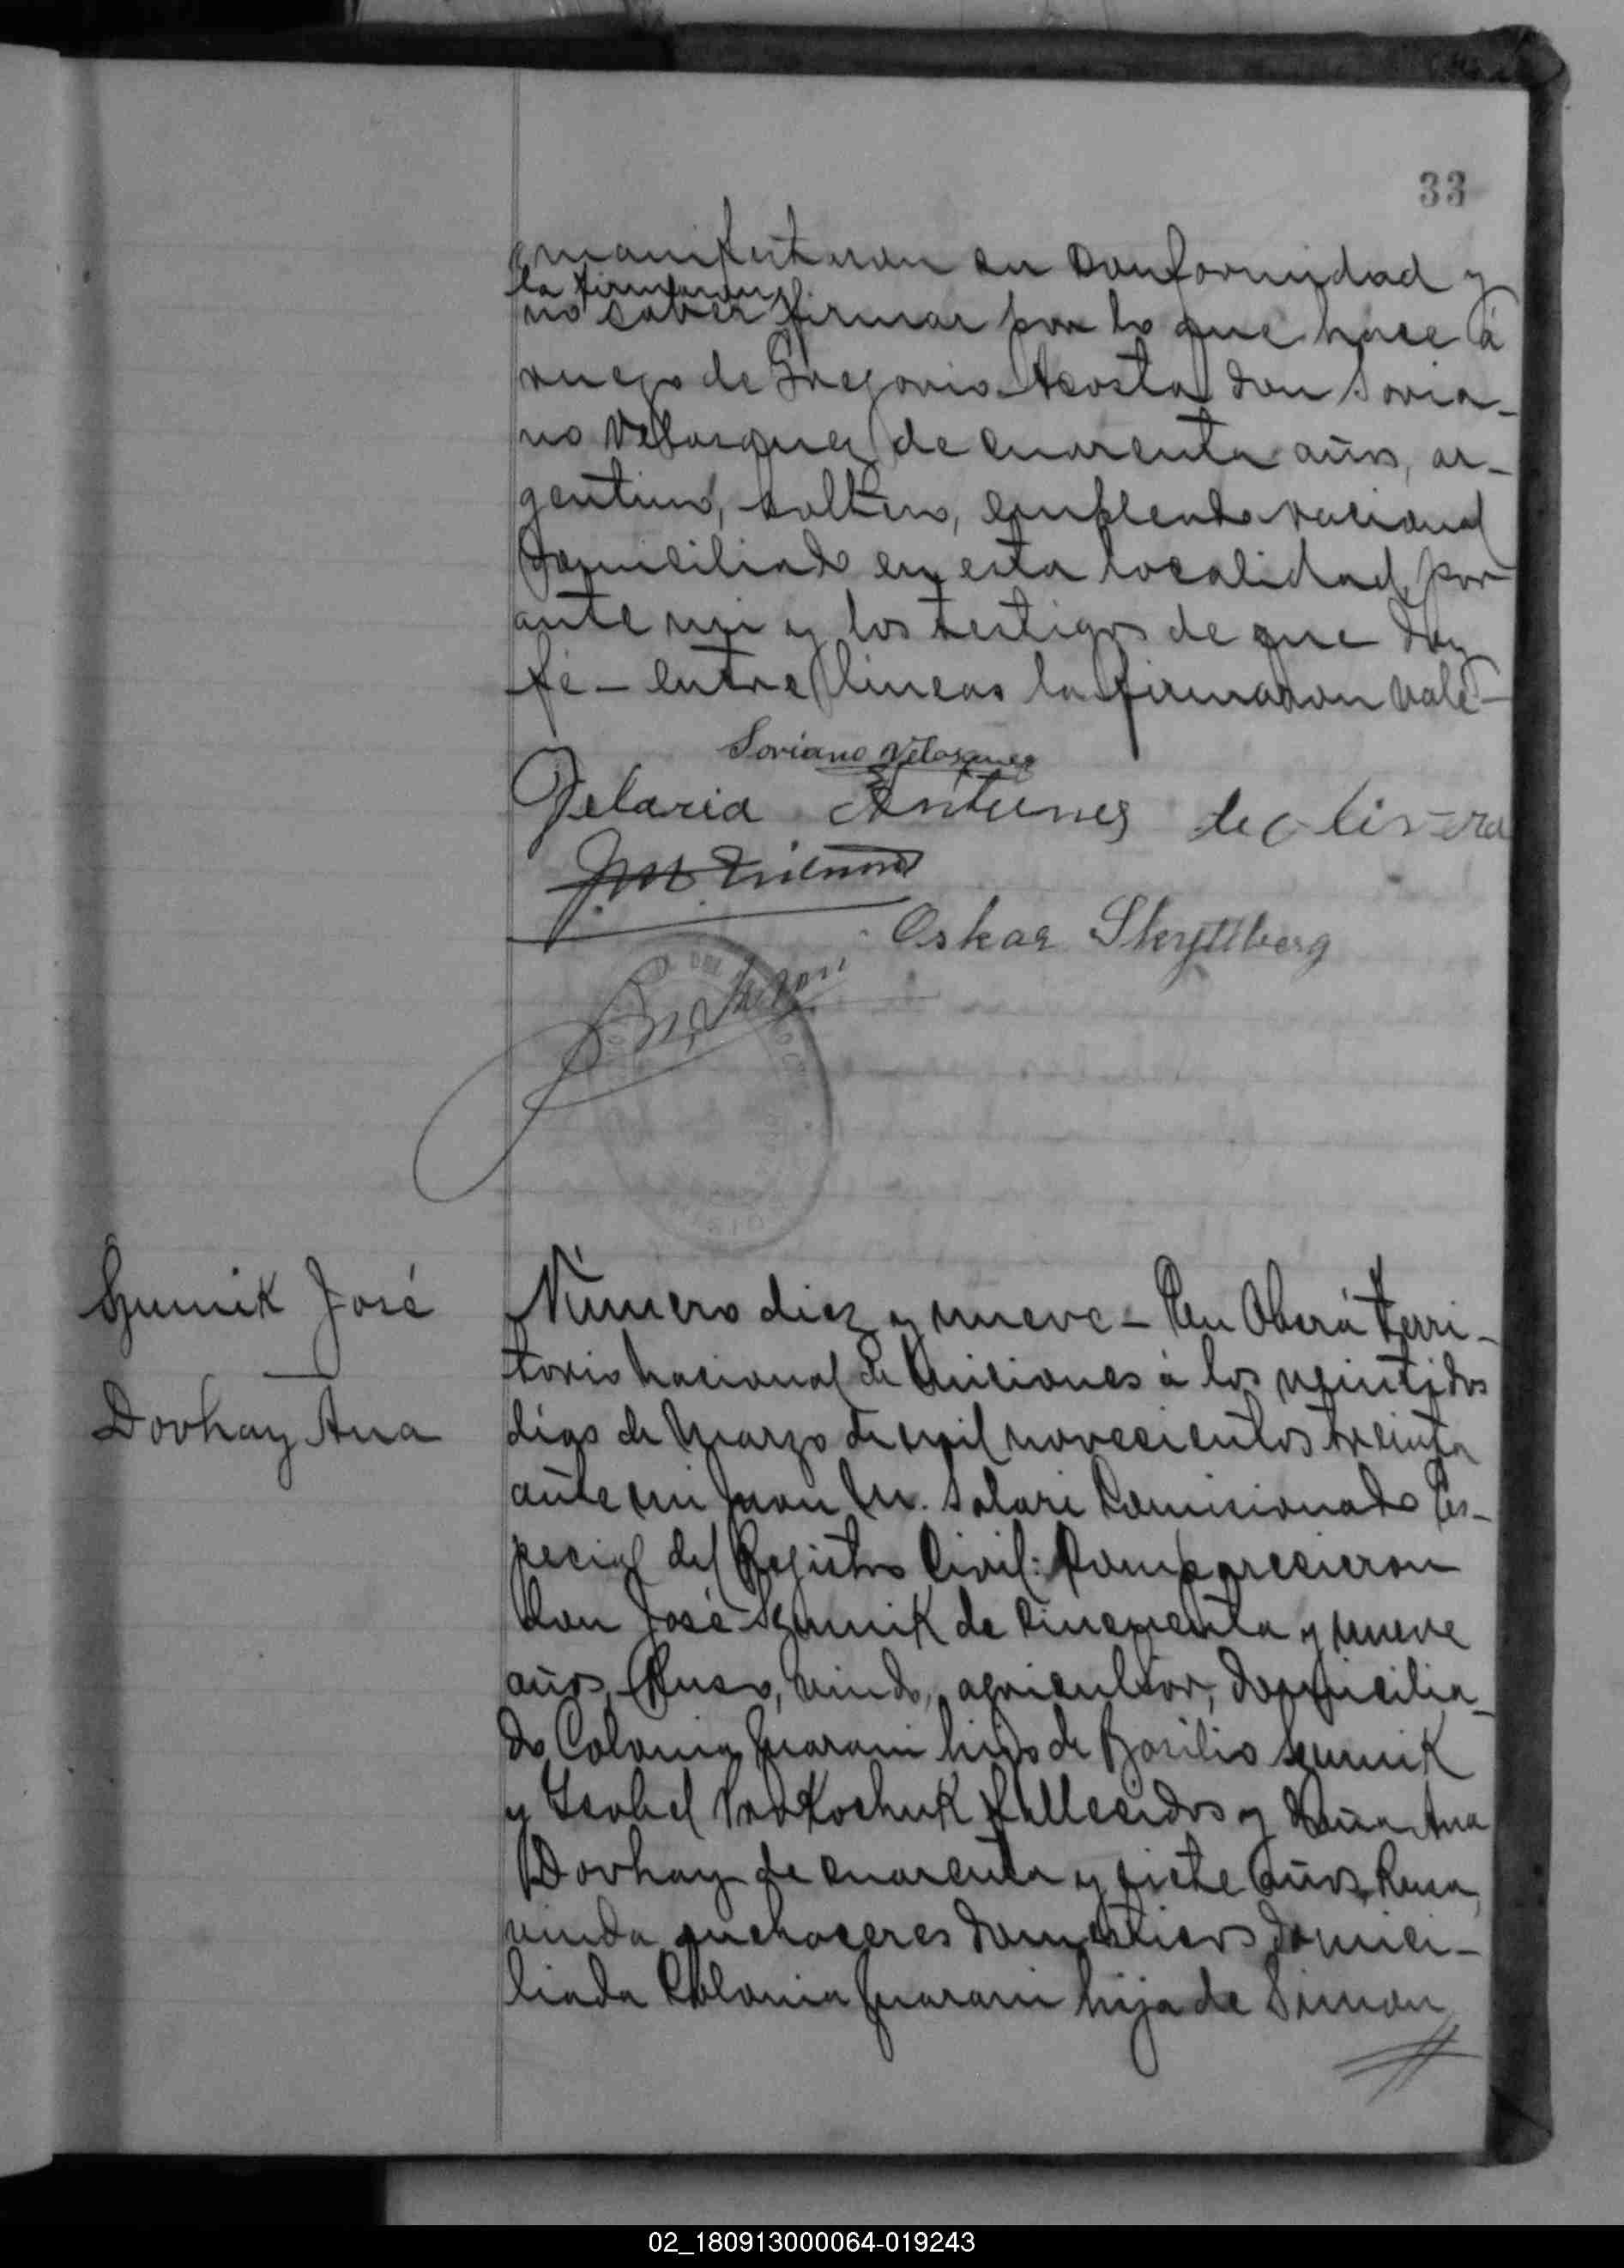 33
manifestaron su conformidad y
la firmaron
no saber firmar por lo que hace á
ruego de Gregorio Acosta don Soria-
no Velasquez de cuarenta años, ar-
gentino, soltero, empleado nacional
domiciliado en esta localidad, por
ante mi y los testigos de que doy
fé - entre lineas la firmaron vale -
Soriano Velasquez
Antunes de olivera
Oskar
Szumik José
Dovhay Ana
Número diez y nueve - En Oberá Terri-
torio nacional de Misiones á los veintidos
dias de Marzo de mil novecientos treinta
ante mi Juan M. Salari Comisionado Es-
pecial del Registro Civil: Comparecieron
don José Szumik de cincuenta y nueve
años, Ruso, viudo, agricultor, domicilia-
do Colonia Guarani hijo de Basilio Szumik
y Isabel Prokochuk fallecidos y doña Ana
Dovhay de cuarenta y siete años, Rusa,
viuda quehaceres domesticos domici-
liada Colonia Guarani hija de Simon
02_180913000064-019243